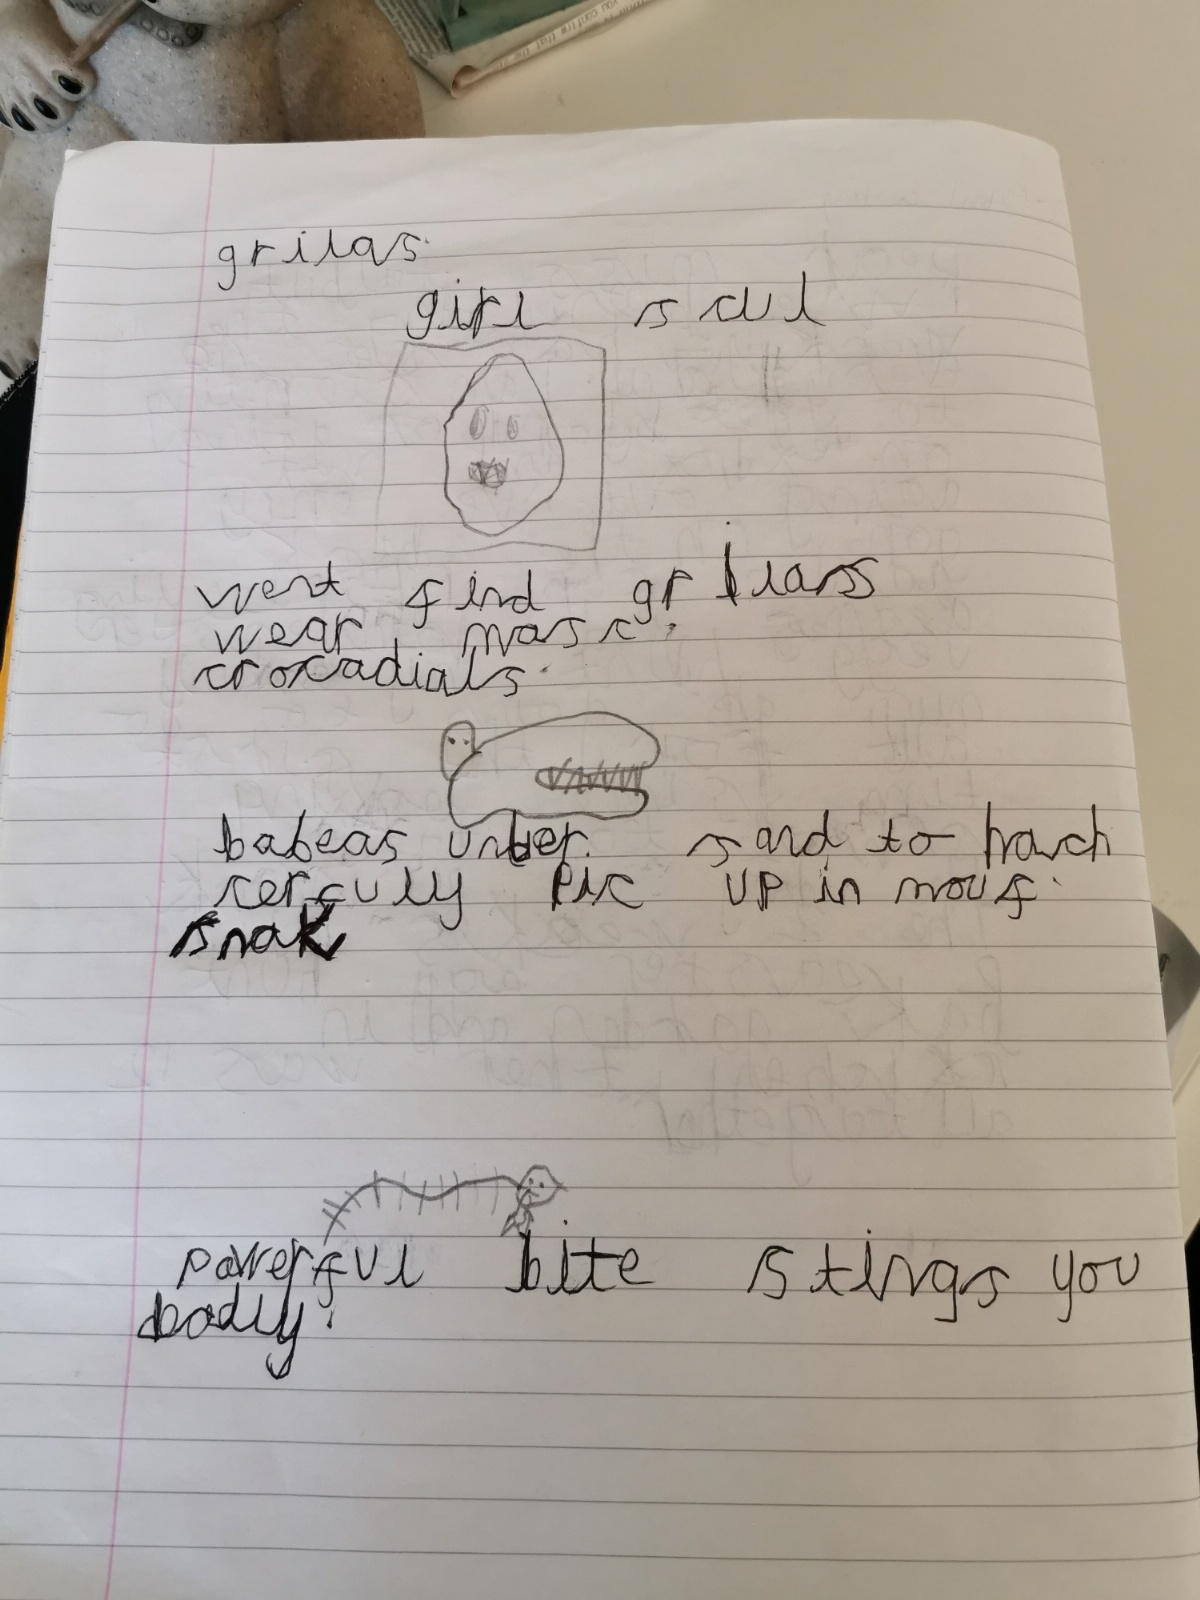 grilas.
girl scul
went find grilarss
wear masc.
crocadials.
babeas unber. sand to hach
cerfully pic up in mouf.
snak
powerful bite stings you
badly.